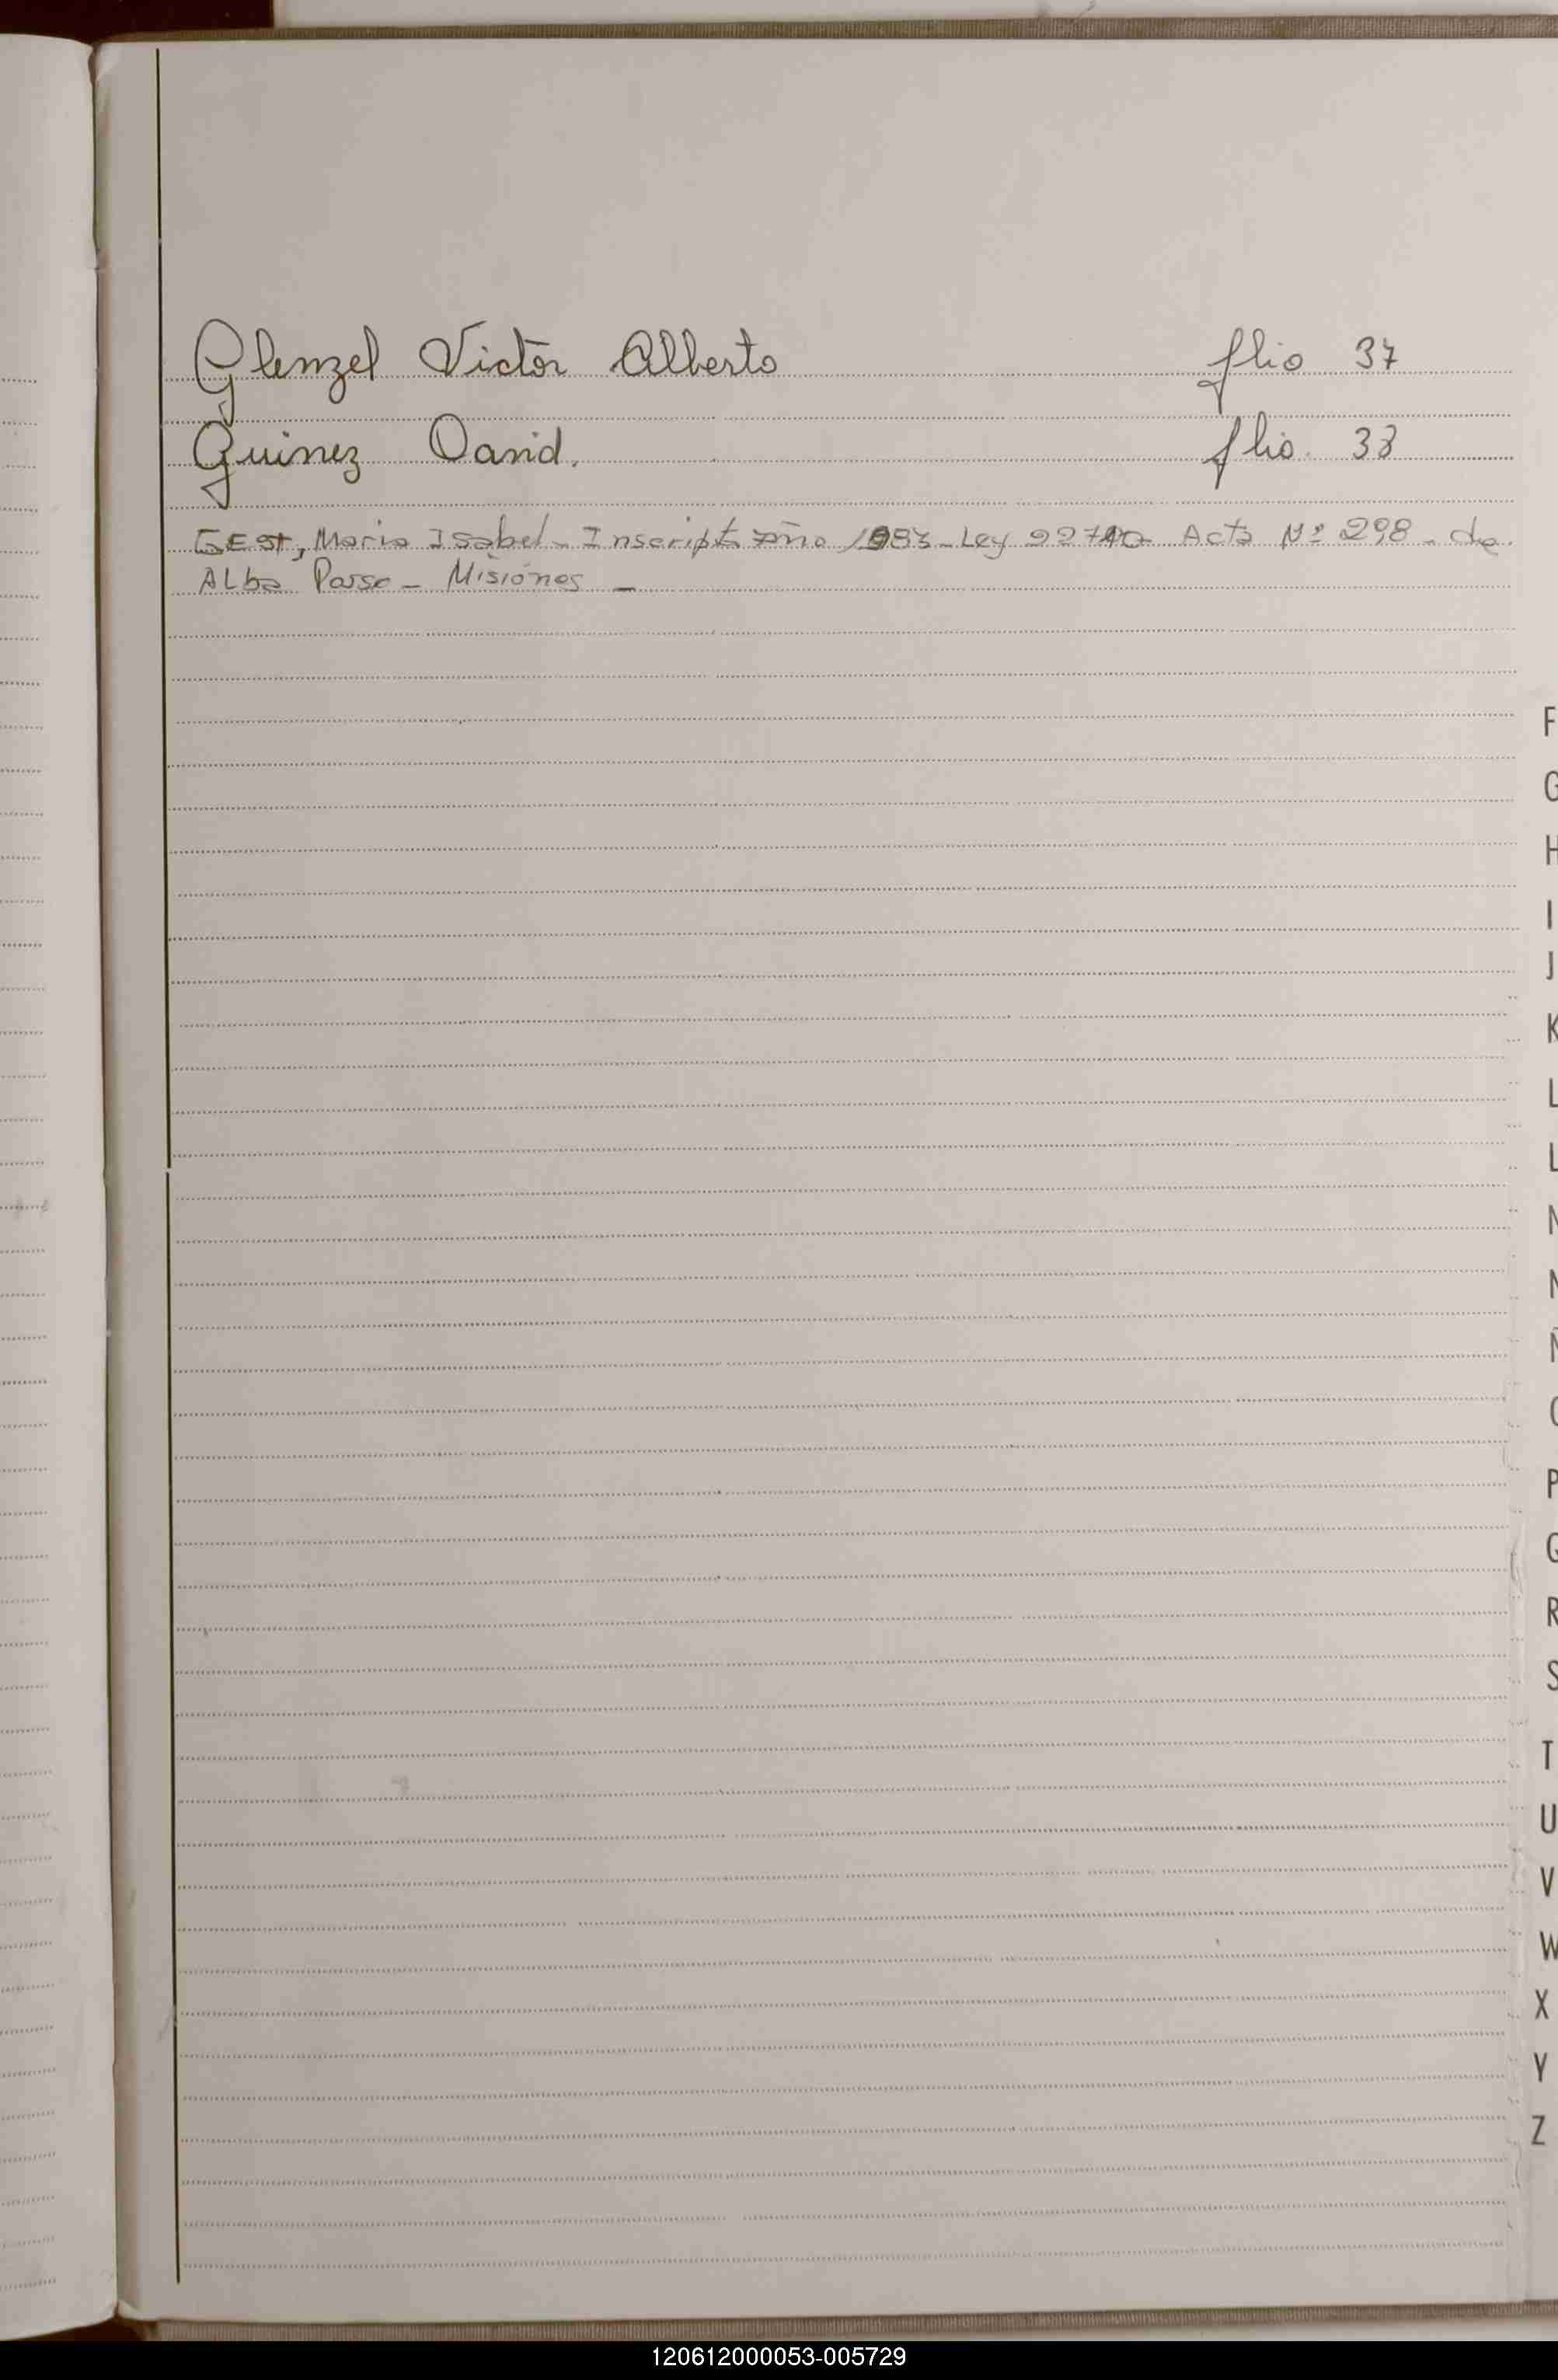 Glenzel Victor Alberto flio 37
Guinez David. flio. 38
GEST, Maria Isabel - Inscripta año 1983 - Ley 22710 Acta Nº 298 - de
ALba Posse - Misiones -
F
G
H
I
J
K
L
L
N
N
Ñ
O
P
Q
R
S
T
U
V
W
X
Y
Z
120612000053-005729